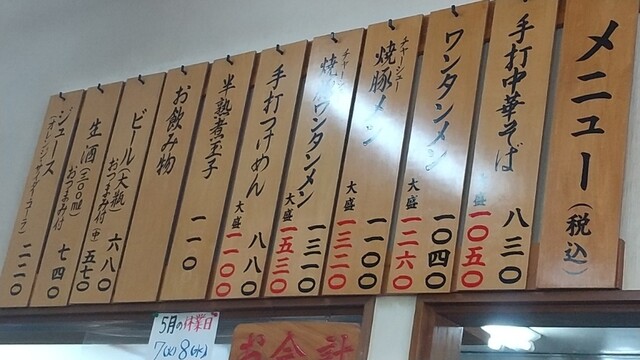 メニュー(税込)
手打中華そば 八三〇
大盛 一〇五〇
ワンタンメン 一〇四〇
大盛 一二六〇
チャーシュー
焼豚メン 一一〇〇
大盛 一三二〇
チャーシュー
焼豚ワンタンメン 一三一〇
大盛 一五三〇
手打つけめん 八八〇
大盛 一一〇〇
半熟煮玉子 一一〇
お飲み物
ビール(大瓶) 六八〇
おつまみ付
生酒(三〇〇ml) 七四〇
おつまみ付
ジュース 二二〇
5月の休業日
お会計